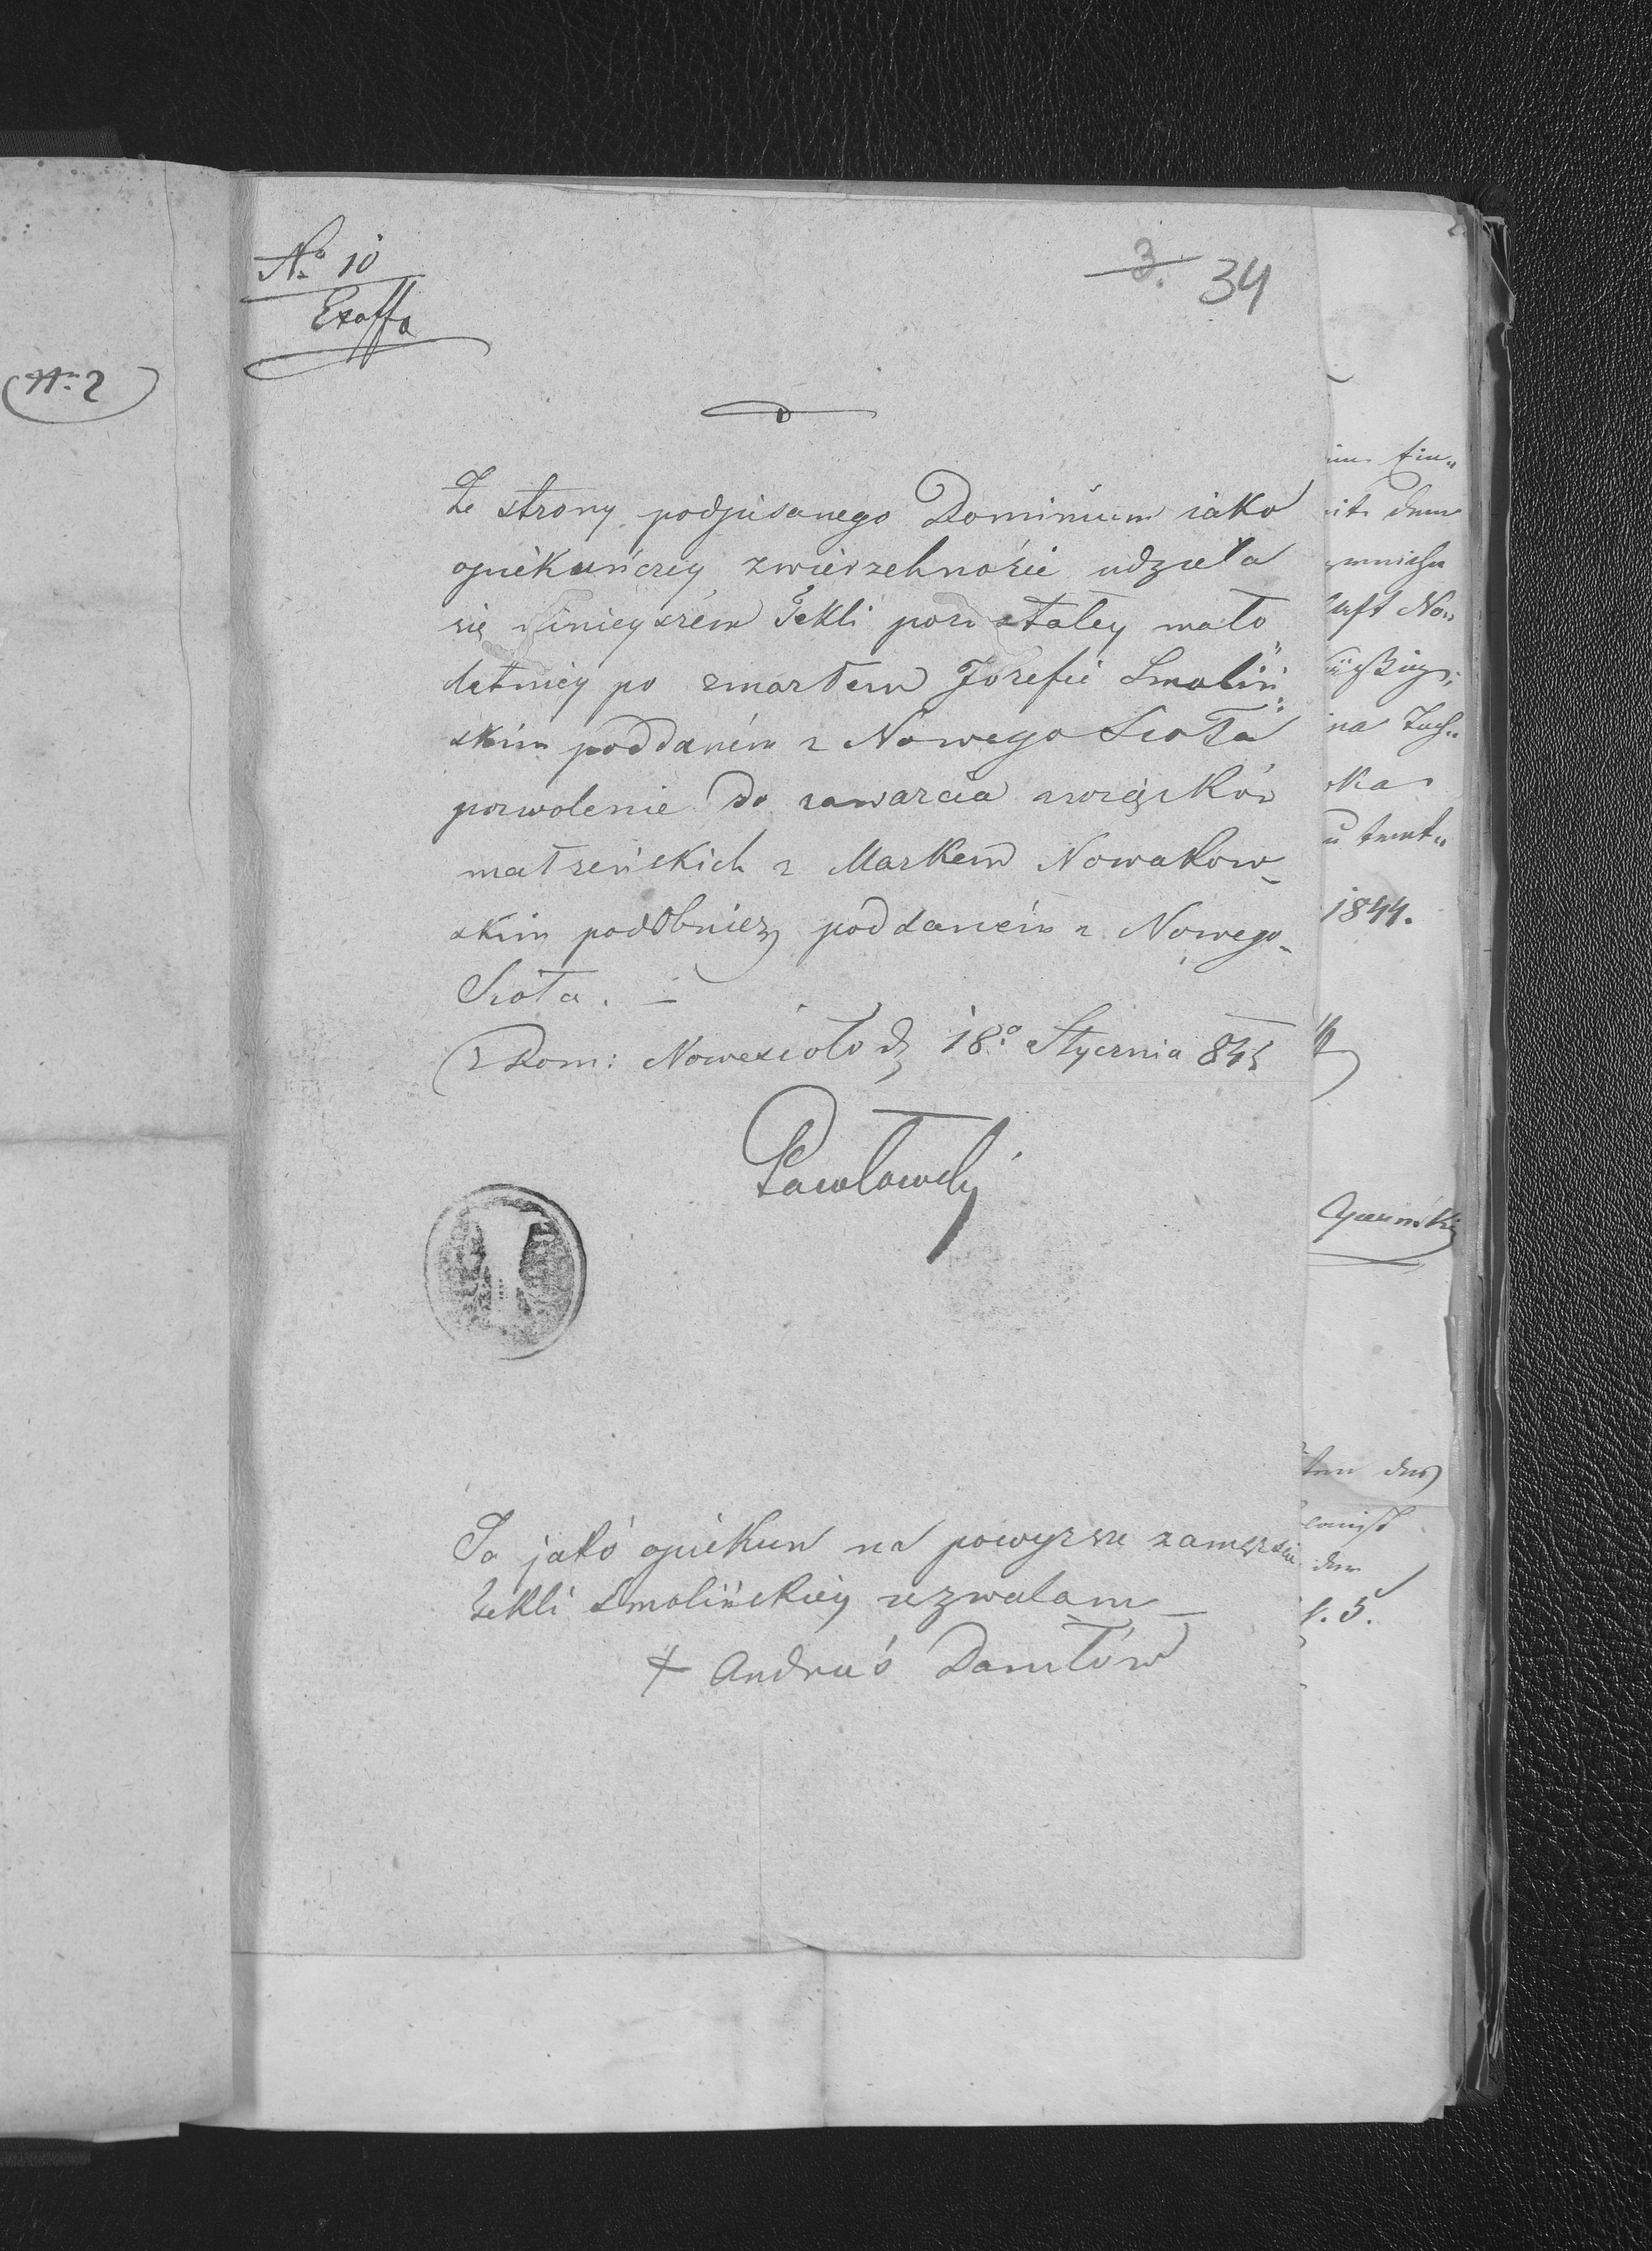 No 2
No 10
Exoffo
3. 34
Ze strony podpisanego Dominium iako
opiekuńczey zwierzchności udziela
się niniejszém Tekli pozostałey mało„
letniey po zmarłem Jozefie Smoliń„
skim poddaném z Nowego Sioła
pozwolenie do zawarcia związków
małżeńskich z Markem Nowakow_
skim podobnież poddaném z Nowego_
Sioła. —
Z Dom: Nowesioło d 18o Stycznia 845
Pawłowski
Ja jako opiekun na powyzsze zamęzcie
Tekli Smolińskiey zezwalam —
+ Andruś Daniłów
1844.